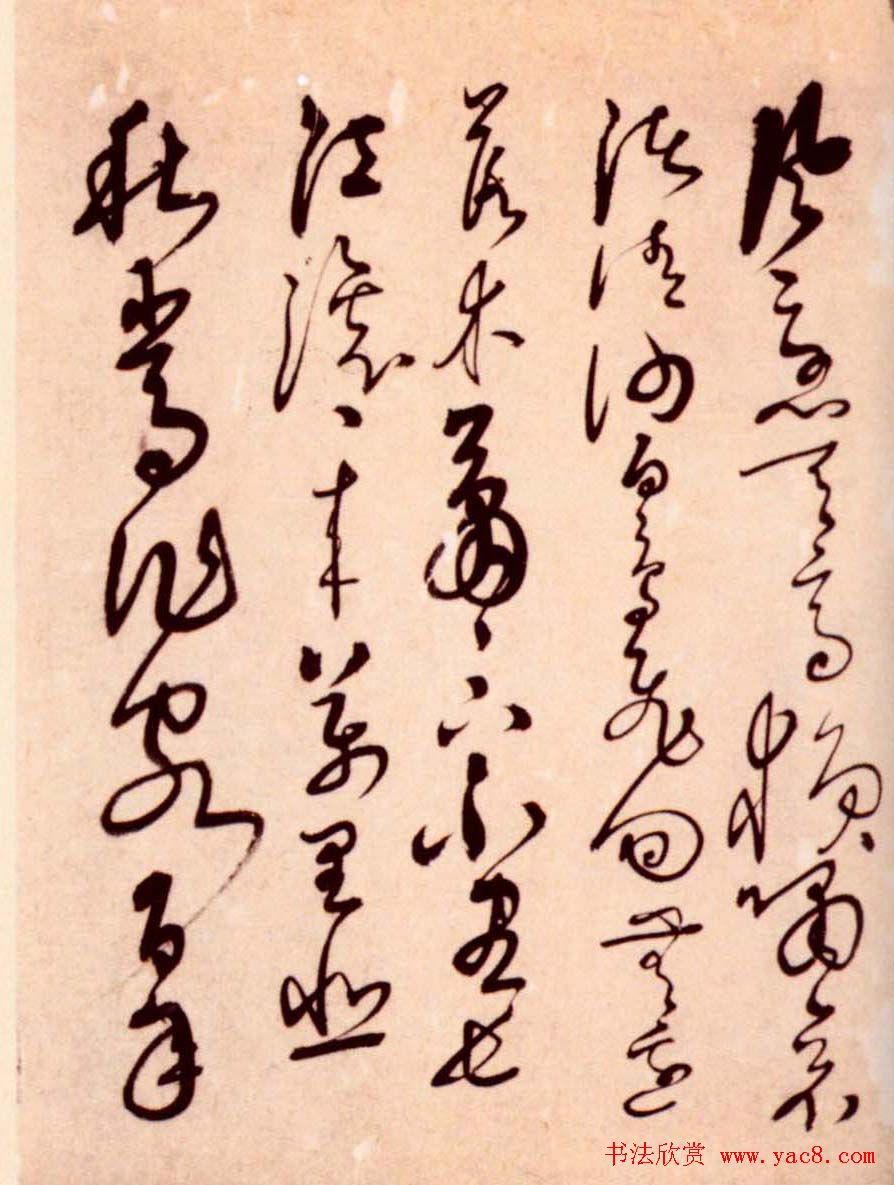 風急天高猿嘯哀
渚清沙白鳥飛回無邊
落木蕭〻下不盡長
江滚〻来萬里悲
秋常作客百年
书法欣赏 www.yac8.com